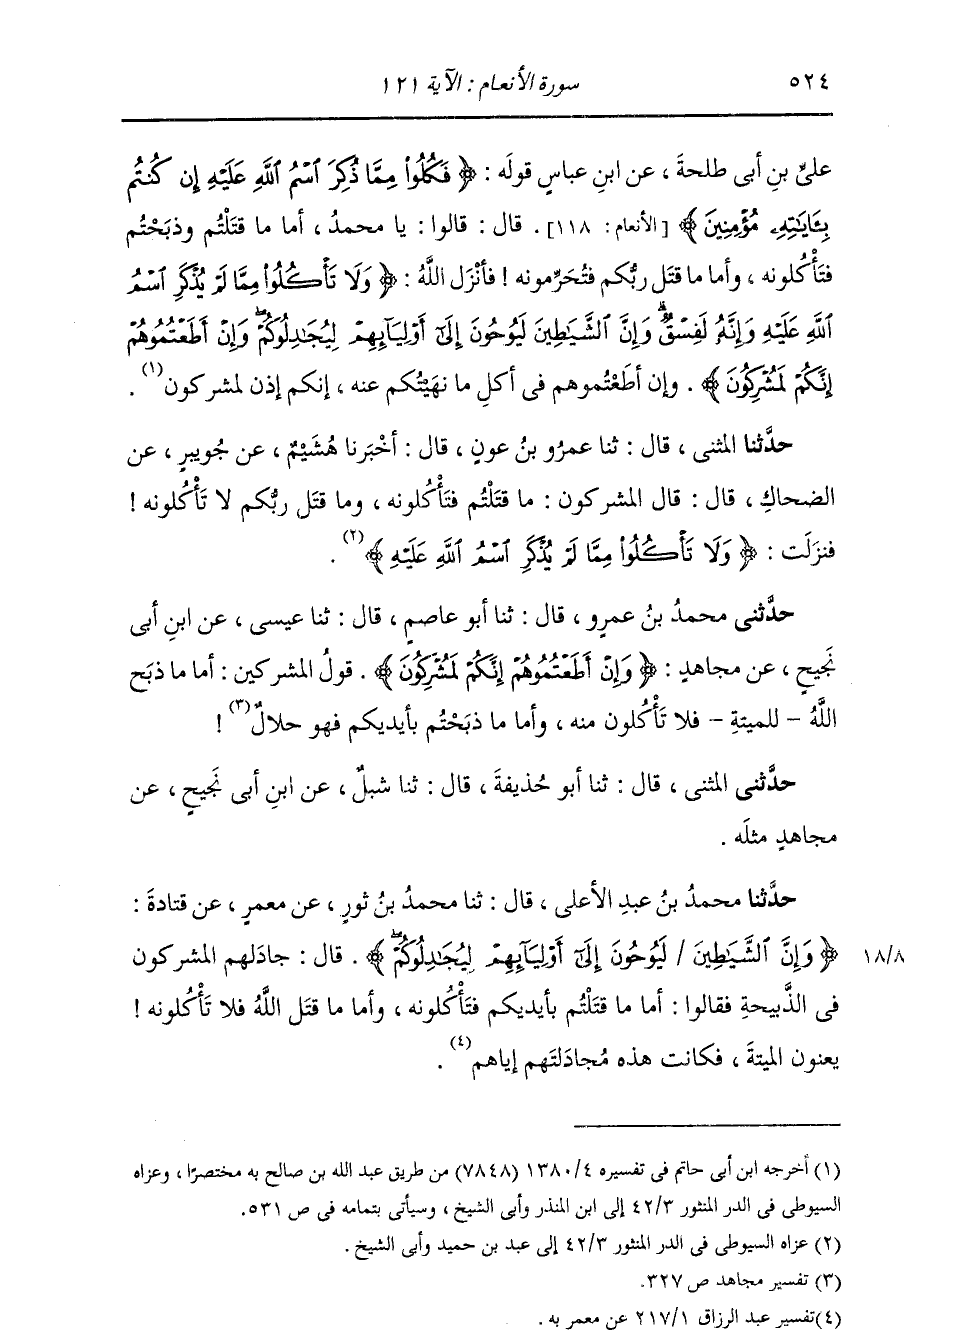 ٥٢٤ سورة الأنعام : الآية ١٢١
علىِّ بنِ أبى طلحةَ ، عن ابنِ عباسٍ قولَه : ﴿ فَكُلُوا۟ مِمَّا ذُكِرَ ٱسْمُ ٱللَّهِ عَلَيْهِ إِن كُنتُم
بِـَٔايَـٰتِهِۦ مُؤْمِنِينَ ﴾ [ الأنعام : ١١٨ ] . قال : قالوا : يا محمدُ ، أما ما قتَلْتُم وذبَحْتُم
فتَأْكُلونه ، وأما ما قتَل ربُّكم فتُحَرِّمونه ! فأنْزَل اللَّهُ : ﴿ وَلَا تَأْكُلُوا۟ مِمَّا لَمْ يُذْكَرِ ٱسْمُ
ٱللَّهِ عَلَيْهِ وَإِنَّهُۥ لَفِسْقٌۗ وَإِنَّ ٱلشَّيَـٰطِينَ لَيُوحُونَ إِلَىٰٓ أَوْلِيَآئِهِمْ لِيُجَـٰدِلُوكُمْۖ وَإِنْ أَطَعْتُمُوهُمْ
إِنَّكُمْ لَمُشْرِكُونَ ﴾ . وإن أطَعْتُموهم فى أكلِ ما نهَيْتُكم عنه ، إنكم إذن لمشركون(١) .
حدَّثنا المثنى ، قال : ثنا عمرُو بنُ عونٍ ، قال : أخْبَرنا هُشَيْمٌ ، عن جُويبرٍ ، عن
الضحاكِ ، قال : قال المشركون : ما قتَلْتُم فتَأْكُلونه ، وما قتَل ربُّكم لا تَأْكُلونه !
فنزَلَت : ﴿ وَلَا تَأْكُلُوا۟ مِمَّا لَمْ يُذْكَرِ ٱسْمُ ٱللَّهِ عَلَيْهِ ﴾(٢) .
حدَّثنى محمدُ بنُ عمرٍو ، قال : ثنا أبو عاصمٍ ، قال : ثنا عيسى ، عن ابنِ أبى
نَجيحٍ ، عن مجاهدٍ : ﴿ وَإِنْ أَطَعْتُمُوهُمْ إِنَّكُمْ لَمُشْرِكُونَ ﴾ . قولُ المشركين : أما ما ذبَح
اللَّهُ - للميتةِ - فلا تَأْكُلون منه ، وأما ما ذبَحْتُم بأيديكم فهو حلالٌ(٣) !
حدَّثنى المثنى ، قال : ثنا أبو حُذيفةَ ، قال : ثنا شبلٌ ، عن ابنِ أبى نَجيحٍ ، عن
مجاهدٍ مثلَه .
حدَّثنا محمدُ بنُ عبدِ الأعلى ، قال : ثنا محمدُ بنُ ثورٍ ، عن معمرٍ ، عن قتادةَ :
﴿ وَإِنَّ ٱلشَّيَـٰطِينَ / لَيُوحُونَ إِلَىٰٓ أَوْلِيَآئِهِمْ لِيُجَـٰدِلُوكُمْۖ ﴾ . قال : جادَلهم المشركون ١٨/٨
فى الذَّبيحةِ فقالوا : أما ما قتَلْتُم بأيديكم فتَأْكُلونه ، وأما ما قتَل اللَّهُ فلا تَأْكُلونه !
يعنون الميتةَ ، فكانت هذه مُجادَلتَهم إياهم(٤) .
(١) أخرجه ابن أبى حاتم فى تفسيره ١٣٨٠/٤ (٧٨٤٨) من طريق عبد الله بن صالح به مختصرًا ، وعزاه
السيوطى فى الدر المنثور ٤٢/٣ إلى ابن المنذر وأبى الشيخ ، وسيأتى بتمامه فى ص ٥٣١.
(٢) عزاه السيوطى فى الدر المنثور ٤٢/٣ إلى عبد بن حميد وأبى الشيخ .
(٣) تفسير مجاهد ص ٣٢٧.
(٤) تفسير عبد الرزاق ٢١٧/١ عن معمر به .